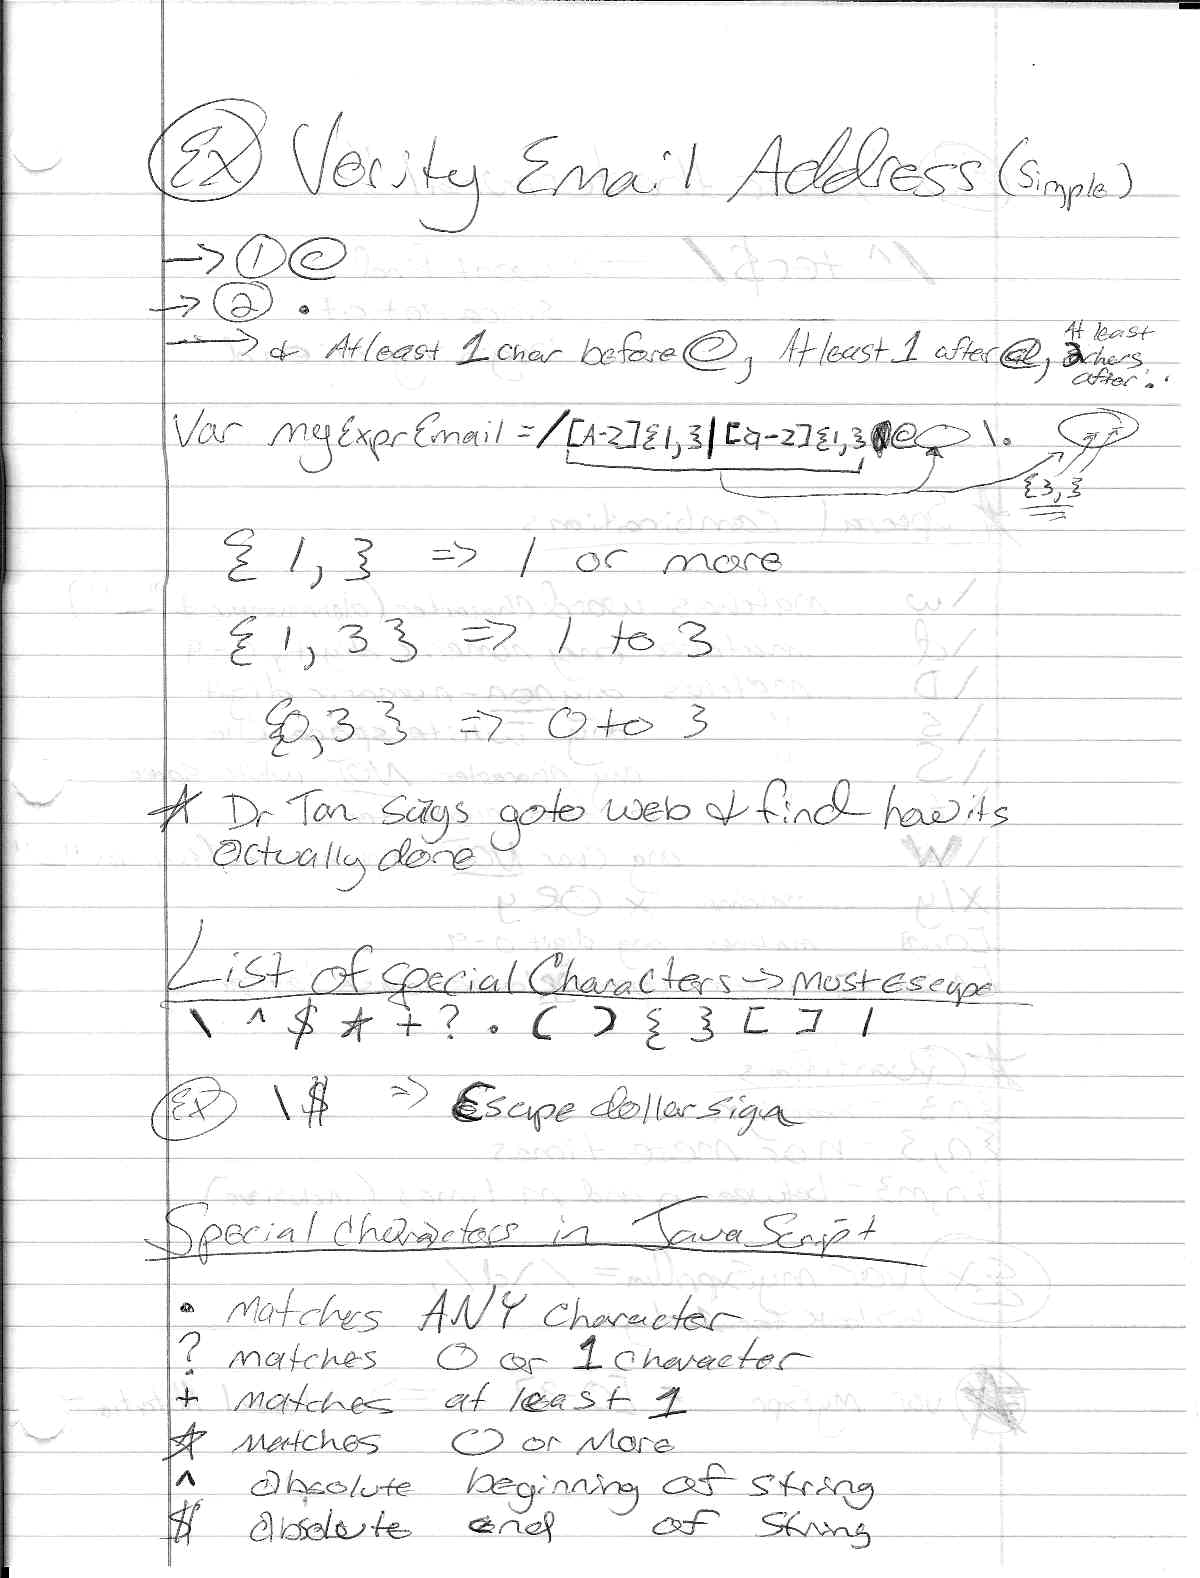 Ex Verify Email Address (simple)
→ ① @
→ ② .
→ & At least 1 char before @, At least 1 after @, At least 2 chars after .
Var myExprEmail = /[A-Z]{1,}|[a-z]{1,}@ \.
{3,}
{1,} => 1 or more
{1,3} => 1 to 3
{0,3} => 0 to 3
* Dr Tan says goto web & find how its
actually done
List of special Characters -> must escape
\ ^ $ * + ? . ( ) { } [ ] |
Ex \$ => Escape dollar sign
Special characters in JavaScript
. matches ANY character
? matches 0 or 1 character
+ matches at least 1
* matches 0 or more
^ absolute beginning of string
$ absolute end of string